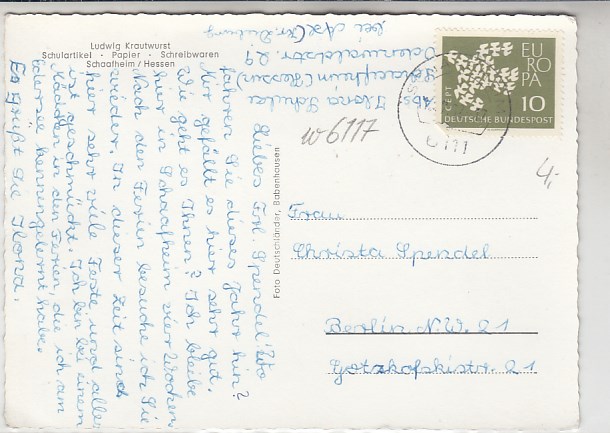 Ludwig Krautwurst
Schulartikel - Papier - Schreibwaren
Schaafheim / Hessen
Abs: Ilona
Schaafheim (Hessen)
Odenwaldstr. 29
bei
Liebes Frl. Spendel! Wo
fahren Sie dieses Jahr hin?
Mir gefällt es hier sehr gut.
Wie geht es Ihnen? Ich bleibe
hier in Schaafheim vier Wochen.
Nach den Ferien besuche ich Sie
wieder. In dieser Zeit sind
hier sehr viele Feste und alles
ist geschmückt. Ich bin bei einem
Mädchen in den Ferien, die ich am
kennengelernt habe.
Es grüßt Sie Ilona.
Foto Deutschländer, Babenhausen
w 6117
EU
RO
PA
CEPT
10
DEUTSCHE BUNDESPOST
6111
4,-
Frau
Christa Spendel
Berlin N.W. 21
Gotzkofskistr. 21